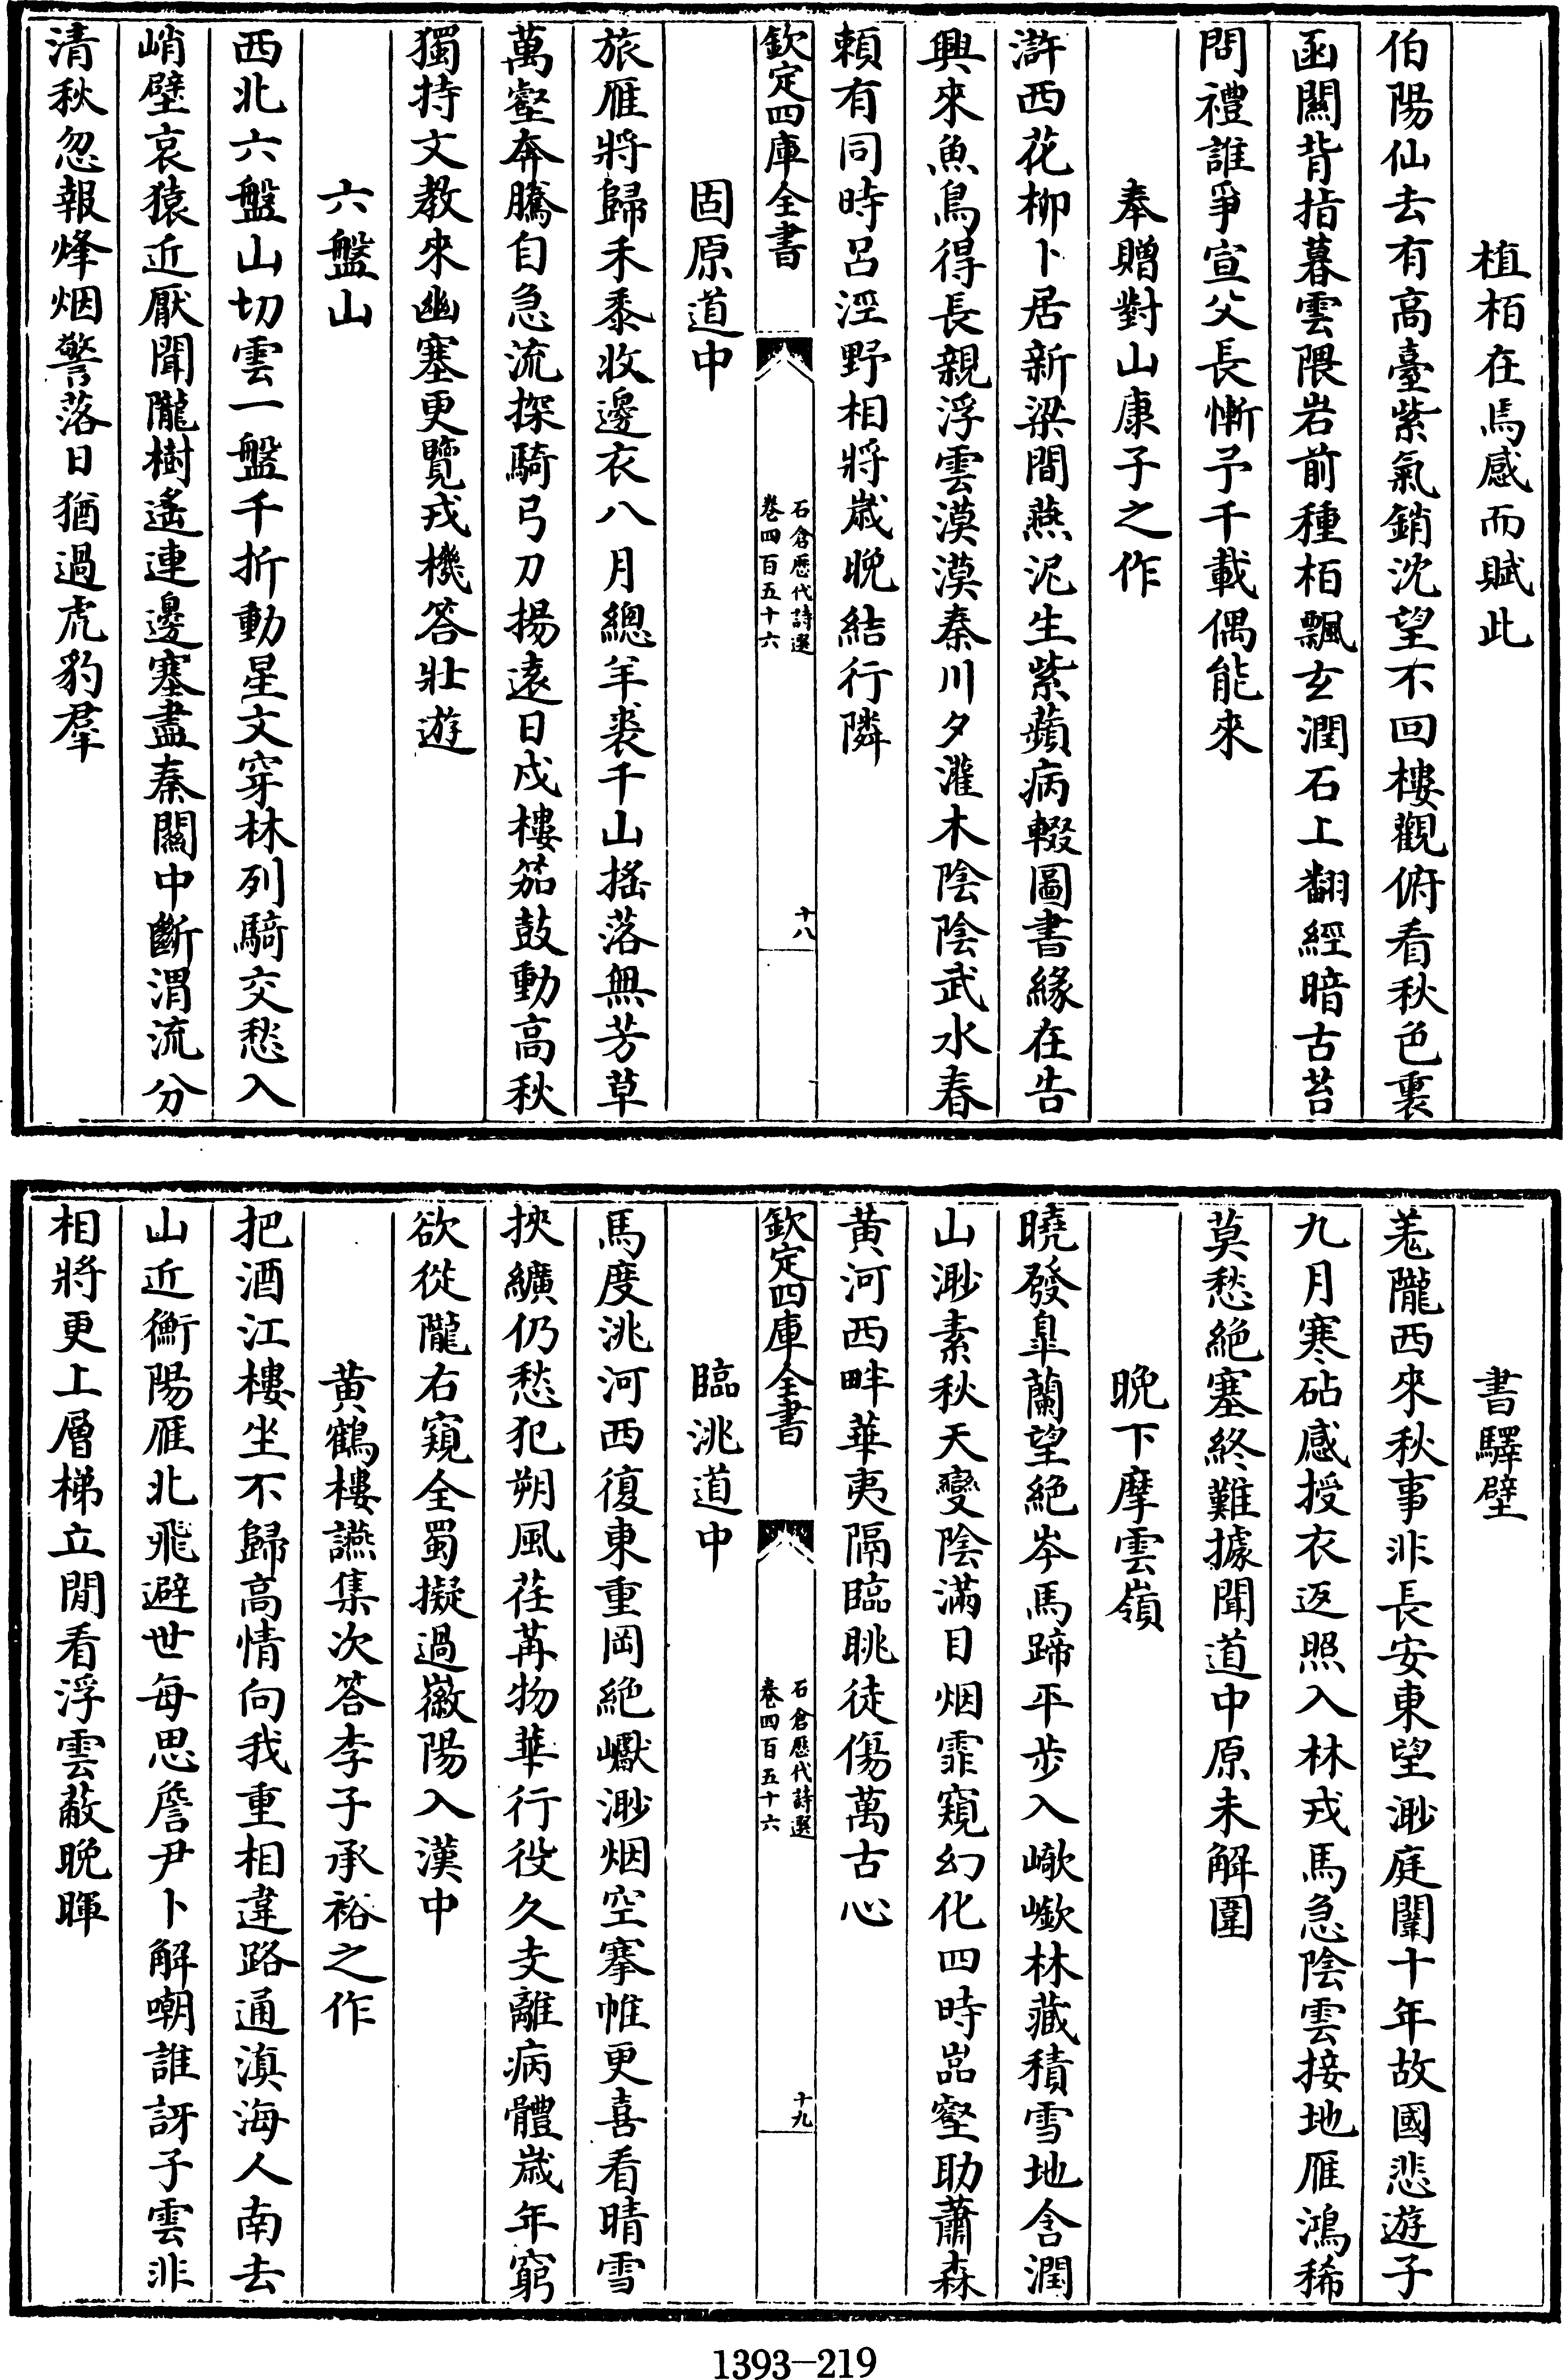 植栢在焉感而賦此
伯陽仙去有高臺紫氣銷沈望不回樓觀俯看秋色裏
函關背指暮雲隈岩前種栢飄玄潤石上翻經暗古苔
問禮誰爭宣父長慚予千載偶能來
奉贈對山康子之作
滸西花柳卜居新梁間燕泥生紫蘋病輟圖書緣在告
興來魚鳥得長親浮雲漠漠秦川夕灌木陰陰武水春
賴有同時呂涇野相將歲晚結行隣
欽定四庫全書
石倉歷代詩選
卷四百五十六
十八
固原道中
旅雁將歸禾黍收邊衣八月總羊裘千山搖落無芳草
萬壑奔騰自急流探騎弓刀揚遠日戍樓笳鼓動高秋
獨持文教來幽塞更覽戎機答壯遊
六盤山
西北六盤山切雲一盤千折動星文穿林列騎交愁入
峭壁哀猿近厭聞隴樹遙連邊塞盡秦關中斷渭流分
清秋忽報烽烟警落日猶過虎豹羣
書驛壁
羗隴西來秋事非長安東望渺庭闈十年故國悲遊子
九月寒砧感授衣返照入林戎馬急陰雲接地雁鴻稀
莫愁絕塞終難據聞道中原未解圍
晚下摩雲嶺
曉發臯蘭望絕岑馬蹄平步入嶔林藏積雪地含潤
山渺素秋天變陰滿目烟霏窺幻化四時嵓壑助蕭森
黃河西畔華夷隔臨眺徒傷萬古心
欽定四庫全書
石倉歷代詩選
卷四百五十六
十九
臨洮道中
馬度洮河西復東重岡絕巘渺烟空搴帷更喜看晴雪
挾纊仍愁犯朔風荏苒物華行役久支離病體歲年窮
欲從隴右窺全蜀擬過徽陽入漢中
黃鶴樓讌集次答李子承裕之作
把酒江樓坐不歸高情向我重相違路通滇海人南去
山近衡陽雁北飛避世每思詹尹卜解嘲誰訝子雲非
相將更上層梯立閒看浮雲蔽晚暉
1393—219